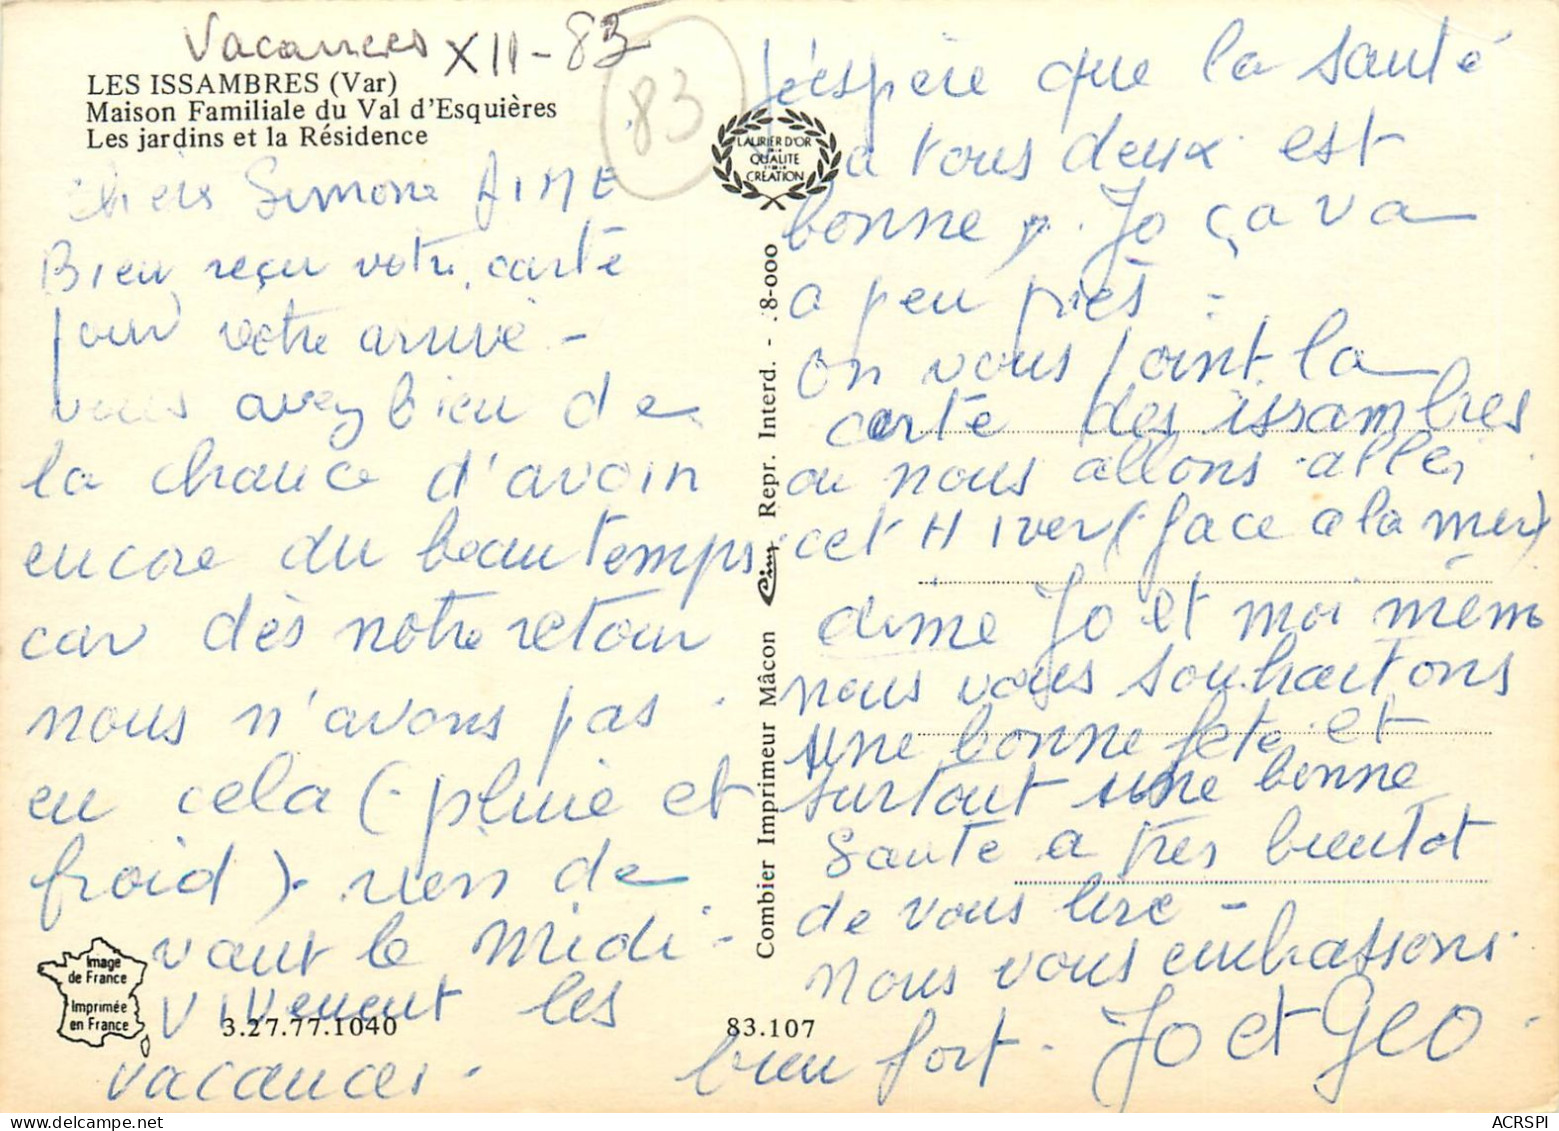 Vacances XII-83
83
LES ISSAMBRES (Var)
Maison Familiale du Val d'Esquières
Les jardins et la Résidence
chers Simone AIME
Bien reçu votre carte
pour votre arrivé -
vous avez bien de
la chance d'avoir
encore du beau temps
car dès notre retour
nous n'avons pas
eu cela (pluie et
froid). rien de
vaut le midi -
vivement les
vacances -
LAURIER D'OR
DE LA
QUALITE
ET DE LA
CRÉATION
Combier Imprimeur Mâcon Cim Repr. Interd. - 8-000
j'espère que la santé
a tous deux est
bonne, Jo ça va
a peu près -
on vous joint la
carte des issambres
ou nous allons aller
cet Hiver (face a la mer)
dime Jo et moi mêm
nous vous souhaitons
une bonne fete et
surtout une bonne
Santé a très bientot
de vous lire -
nous vous embrassons
bien fort - Jo et Géo
Image
de France
Imprimée
en France
3.27.77.1040
83.107
ACRSPI